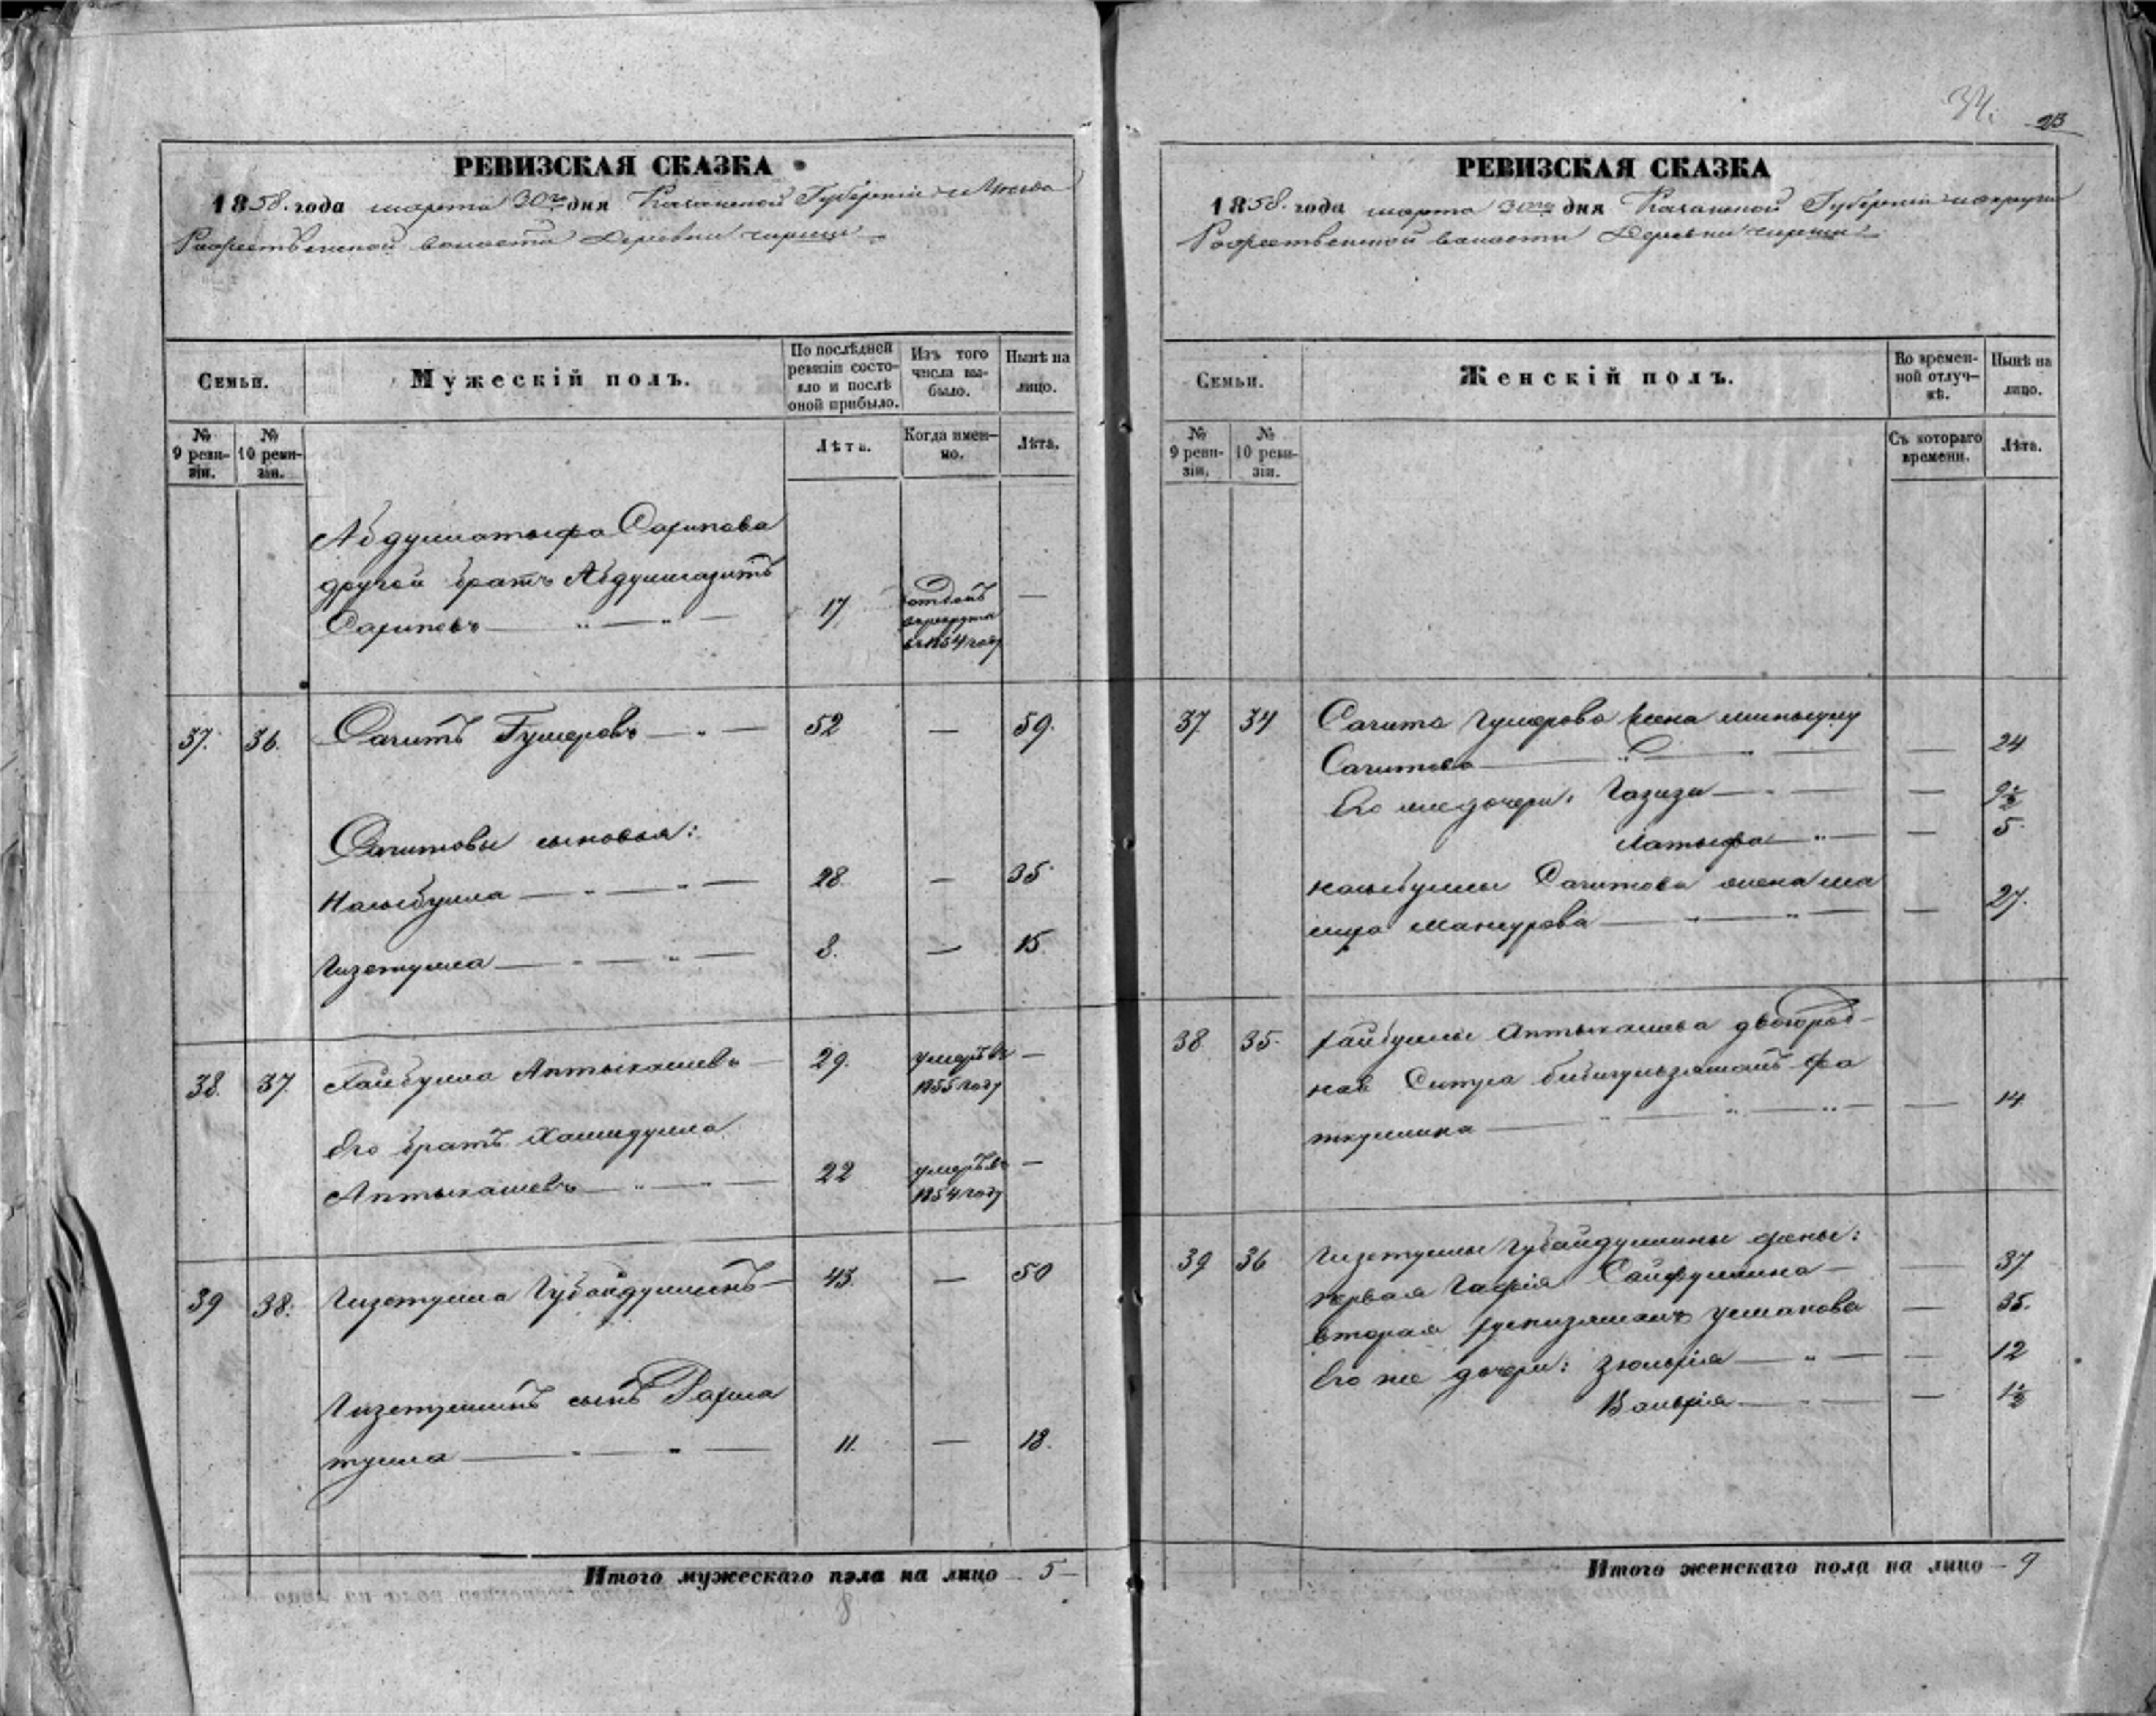 РЕВИЗСКАЯ СКАЗКА
1858. года марта 30го дня Казанской Губерніи
Рожественской волости Деревни
Семьи.
Мужескій полъ.
По послѣдней ревизіи состояло и послѣ оной прибыло.
Изъ того числа выбыло.
Нынѣ на лицо.
№ 9 ревизіи.
№ 10 ревизіи.
Лѣта.
Когда именно.
Лѣта.
Абдуллатыфа Сарипова
другой братъ Абдуллазитъ
Сариповъ 17 отданъ в рекруты в 1854 году —
37. 36. Сагитъ Гумеровъ 52 — 59.
Сагитовы сыновья:
Насыбулла 28. — 35
Гизетулла 8. — 15
38. 37. Хайбулла Аптыкашевъ 29. умеръ въ 1855 году —
Его братъ Хамидулла
Аптыкашевъ 22 умеръ в 1854 году —
39 38. Гизетулла Губайдуллинъ 43. — 50
Гизетуллинъ сынъ Рахма
тулла 11. — 18.
Итого мужескаго пола на лицо 5
8
34.
23
РЕВИЗСКАЯ СКАЗКА
1858. года марта 30го дня Казанской Губерніи
Рожественской волости Деревни
Семьи.
Женскій полъ.
Во временной отлучкѣ.
Нынѣ на лицо.
№ 9 ревизіи.
№ 10 ревизіи.
Съ котораго времени.
Лѣта.
37. 34 Сагита Гумерова жена
Сагитова — 24
Его же дочери: Газиза — 9½
Латыфа — 5
Насыбуллы Сагитова жена
Мансурова — 27.
38 35 Хайбуллы Аптыкашева двоюрод-
ная Сестра Бибигульзяманъ Фа
ткуллина — 14
39 36 Гизетуллы Губайдуллины жены:
первая Гафія Сайфуллина — 37
вторая Усманова — 35.
Его же дочери: Зюльфія — 12
Вальфія — 1½
Итого женскаго пола на лицо 9